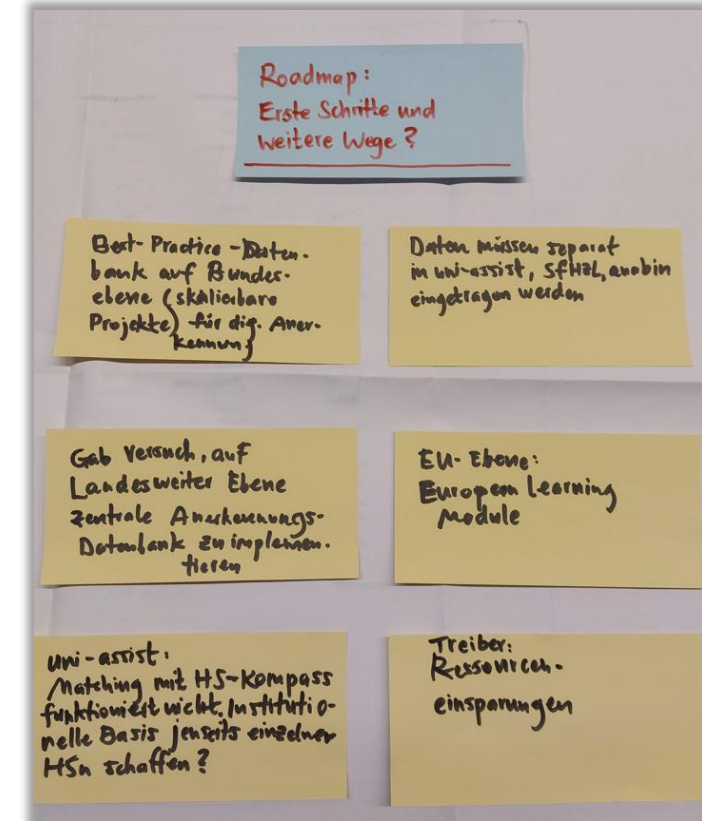 Roadmap:
Erste Schritte und
weitere Wege?
Best-Practice-Daten-
bank auf Bundes-
ebene (skalierbare
Projekte) für dig. Aner-
kennung
Daten müssen separat
in uni-assist, SfHZL, anabin
eingetragen werden
Gab Versuch, auf
Landesweiter Ebene
zentrale Anerkennungs-
Datenbank zu implemen-
tieren
EU-Ebene:
European Learning
Module
uni-assist:
Matching mit HS-Kompass
funktioniert nicht. Institutio-
nelle Basis jenseits einzelner
HSn schaffen?
Treiber:
Ressourcen-
einsparungen